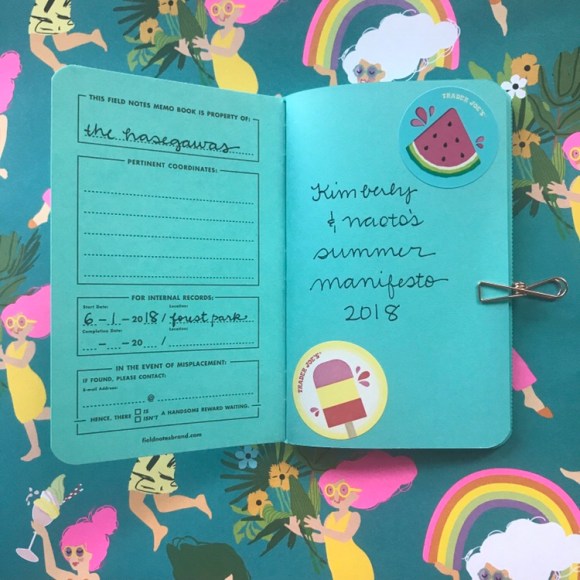 THIS FIELD NOTES MEMO BOOK IS PROPERTY OF:
the hasegawas
PERTINENT COORDINATES:
FOR INTERNAL RECORDS:
Start Date: Location:
6 - 1 - 2018 / forest park
Completion Date: Location:
- - 20 /
IN THE EVENT OF MISPLACEMENT:
IF FOUND, PLEASE CONTACT:
E-mail Address:
@
HENCE, THERE ☐ IS ☐ ISN'T A HANDSOME REWARD WAITING.
fieldnotesbrand.com
TRADER JOE'S
Kimberly
& naoto's
summer
manifesto
2018
TRADER JOE'S